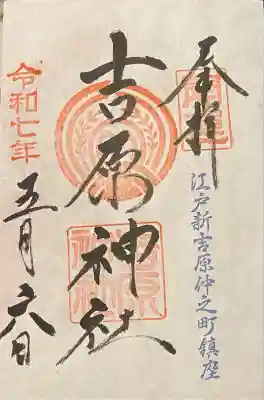 奉拝
江戸新吉原仲之町鎮座
吉原神社
令和七年
五月六日